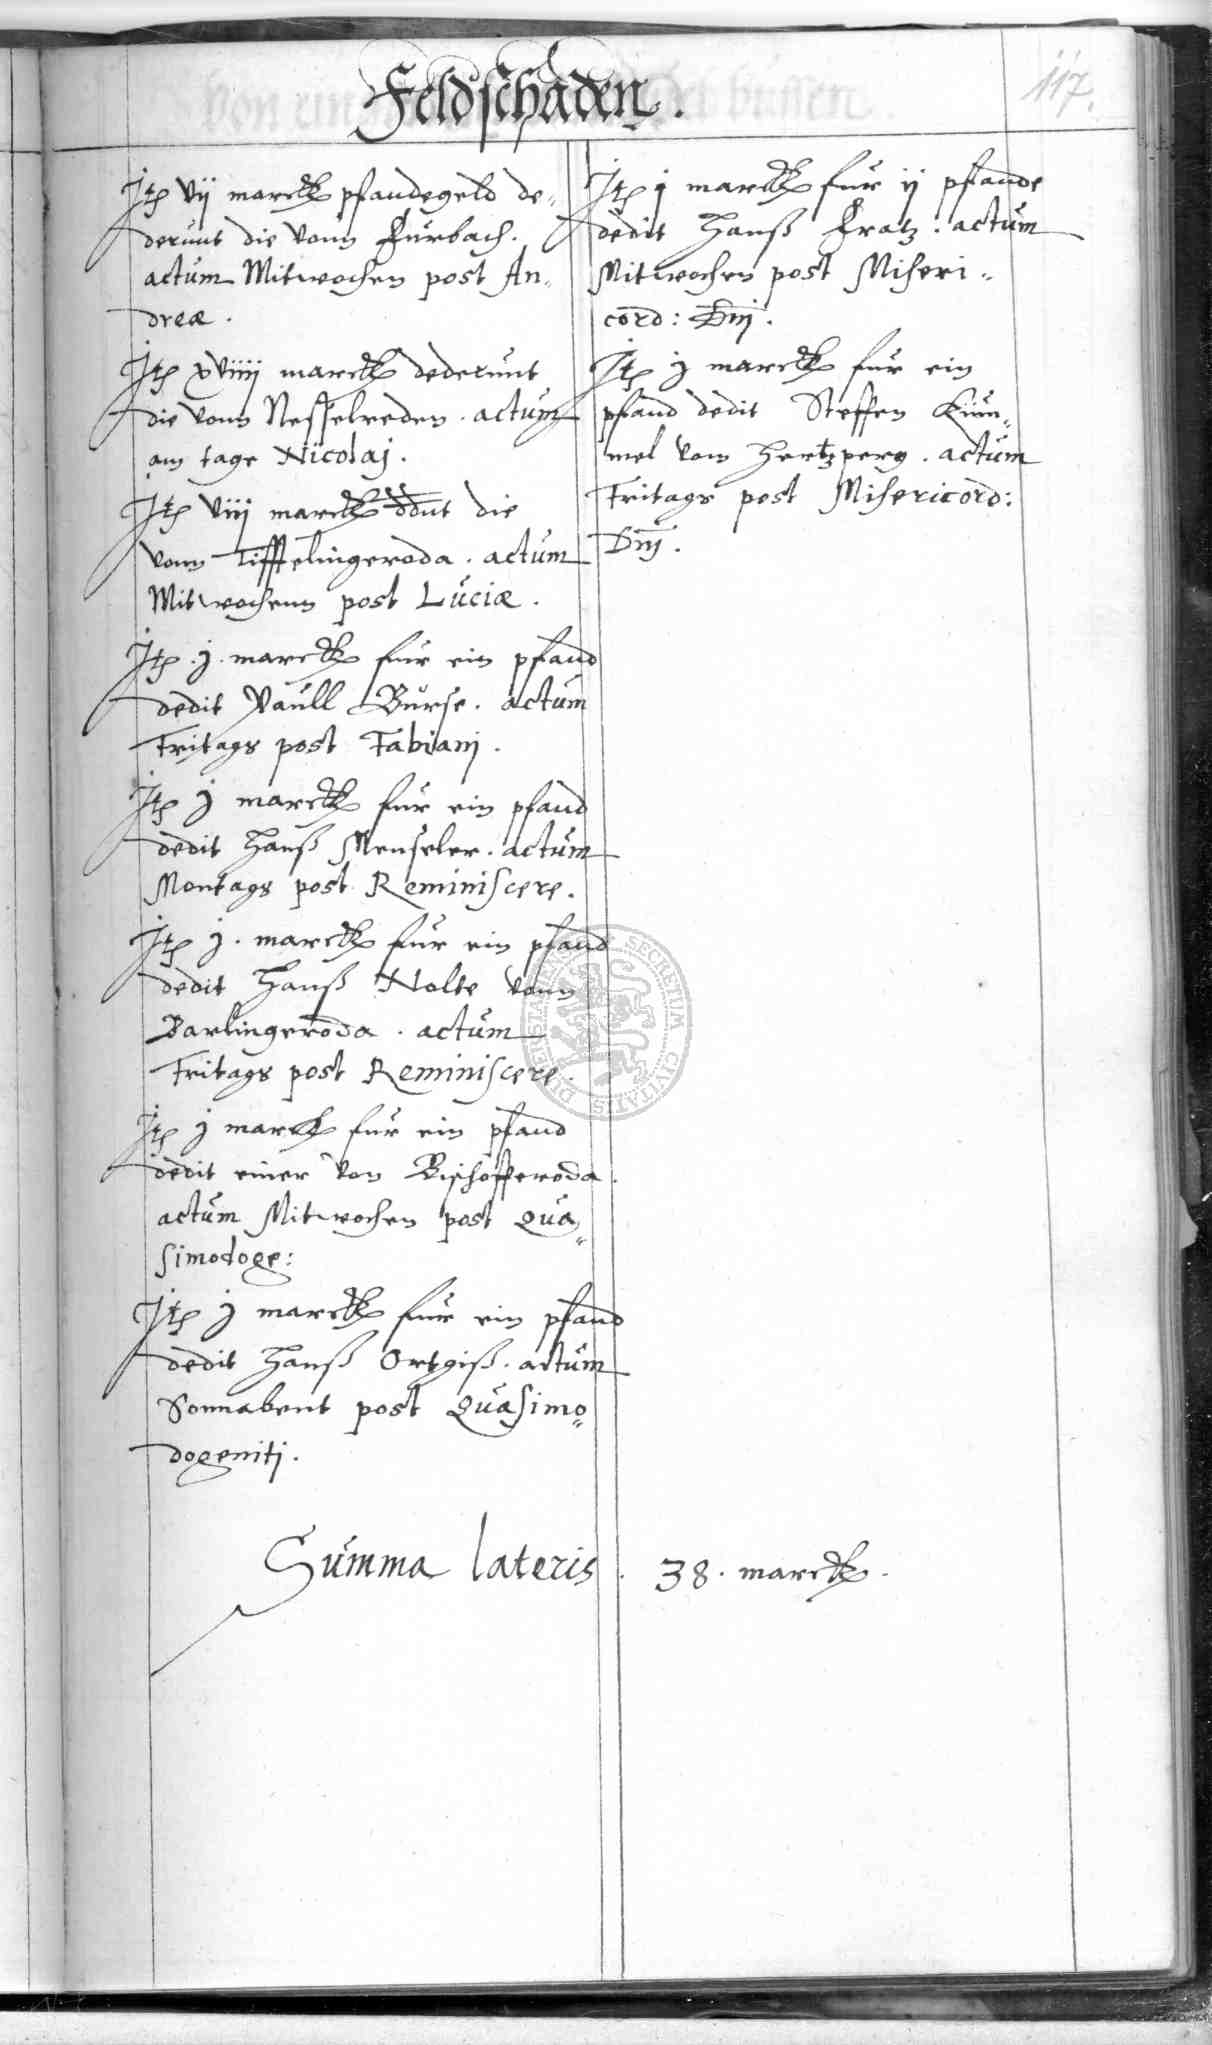 Feldschaden.
117.
Jtem vij marck pfandegeld de-
derunt die vonn Furbach.
actum Mitwochen post An-
dreæ.
Jtem xviiij marck dederunt
die vonn Nesselreden. actum
am tage Nicolaj.
Jtem viij marck ddnt die
vonn Tifftelingeroda. actum
Mitwochenn post Luciæ.
Jtem .j. marck fur ein pfand
dedit Paull Burse. actum
Fritags post Fabianj.
Jtem j marck fur ein pfand
dedit Hanß Mengeler. actum
Montags post Reminiscere.
Jtem j. marck fur ein pfand
dedit Hanß Nolte vonn
Barlingeroda. actum
Fritags post Reminiscere.
Jtem j marck fur ein pfand
dedit einer von Bischofferoda.
actum Mitwochen post Qua-
simodoge:
Jtem j marck fur ein pfand
dedit Hanß Ortgiß. actum
Sonnabent post Quasimo-
dogenitj.
Jtem j marck fur ij pfande
dedit Hanß Fratz. actum
Mitwochen post Miseri-
cord: Dnj.
Jtem j marck fur ein
pfand dedit Steffen Kum-
mel vom Hertzperg. actum
Fritags post Misericord:
Dnj.
Summa lateris. 38. marck.
SECRETUM CIVITATIS DUDERSTATENSIS